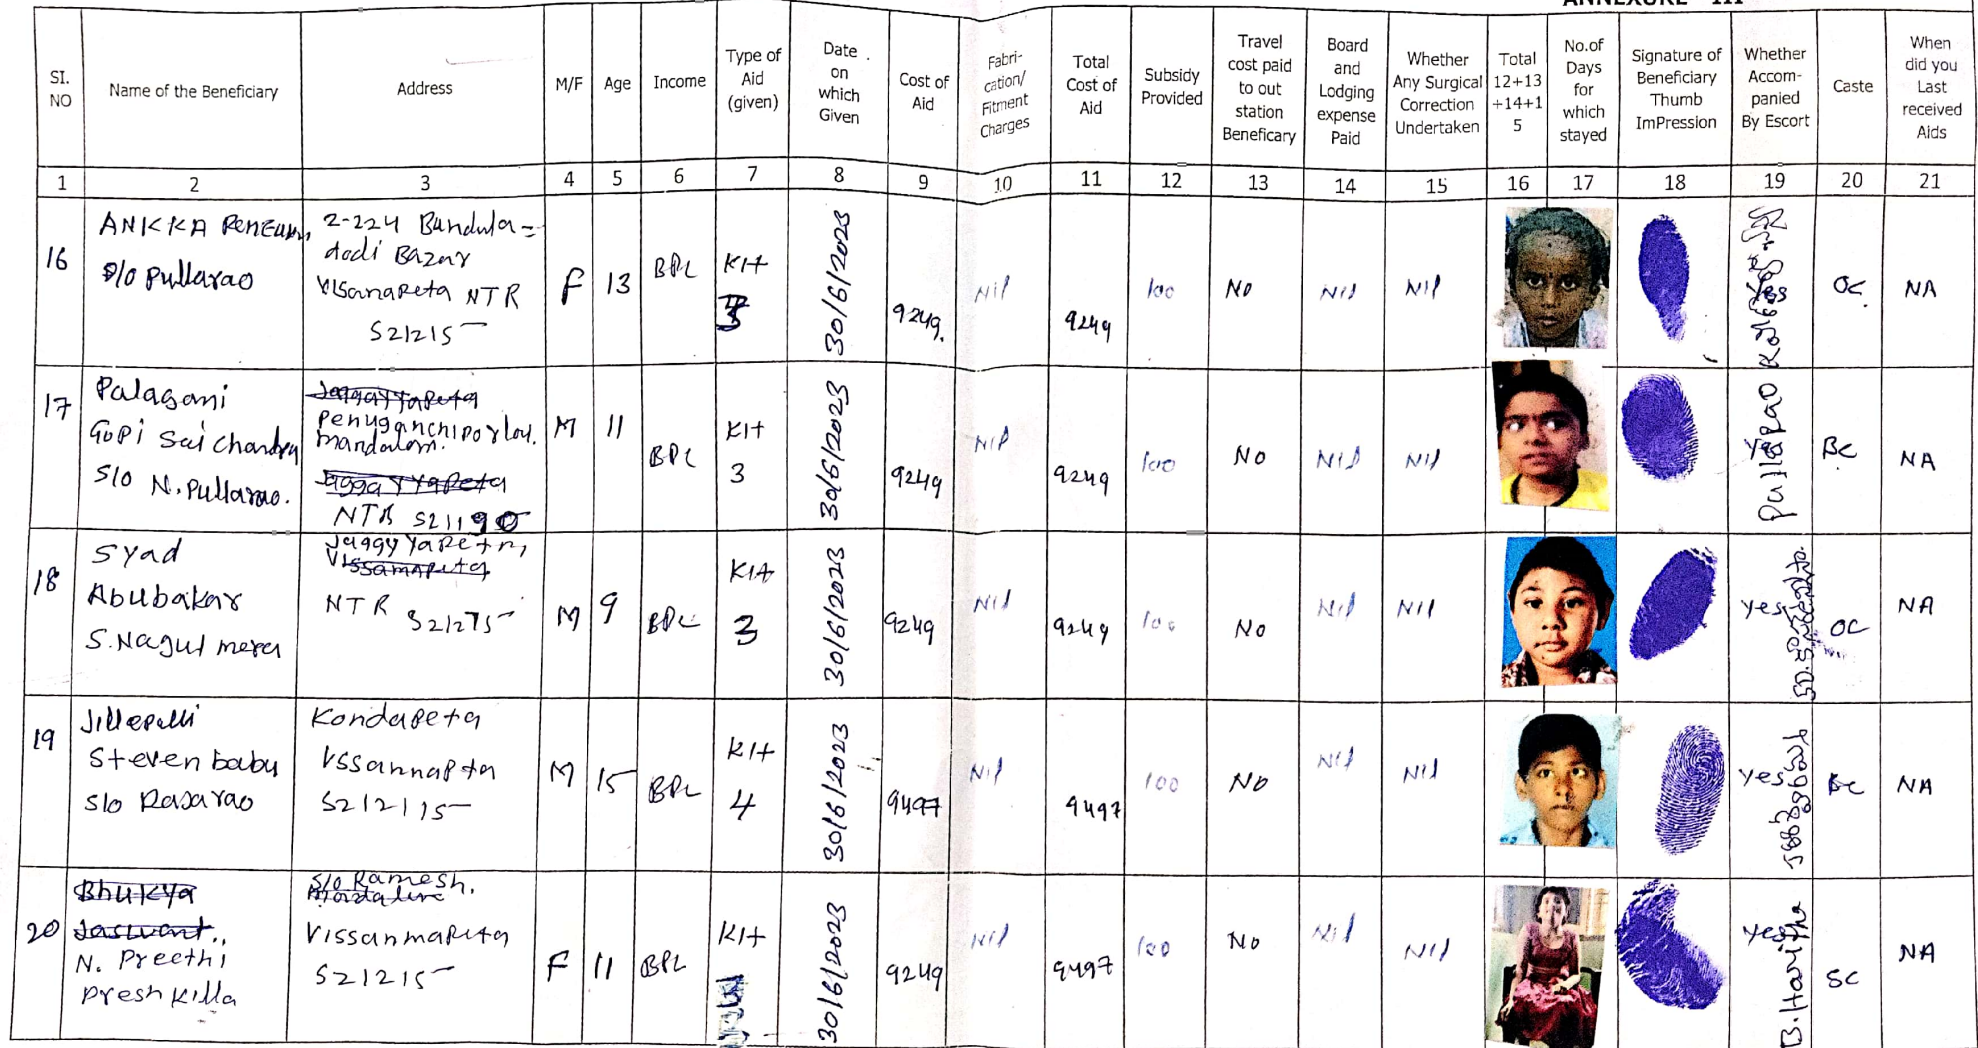 ANNEXURE - III
SI. NO
Name of the Beneficiary
Address
M/F
Age
Income
Type of Aid (given)
Date on which Given
Cost of Aid
Fabri-cation/ Fitment Charges
Total Cost of Aid
Subsidy Provided
Travel cost paid to out station Beneficary
Board and Lodging expense Paid
Whether Any Surgical Correction Undertaken
Total 12+13+14+15
No.of Days for which stayed
Signature of Beneficiary Thumb ImPression
Whether Accom-panied By Escort
Caste
When did you Last received Aids
1 2 3 4 5 6 7 8 9 10 11 12 13 14 15 16 17 18 19 20 21
16
ANKKA
D/o Pullarao
2-224 Bandula=
dodi Bazar
Vissanapeta NTR
521215
F 13 BPL KIT 3 30/6/2023 9249. Nil 9249 100 No Nil Nil Yes OC NA
17
Palagani
Gopi Sai Chandra
S/o N.Pullarao.
Jaggayyapeta
Penuganchiporlou.
mandalam.
Jaggayyapeta
NTR 521190
M 11 BPL KIT 3 30/6/2023 9249 Nil 9249 100 No Nil Nil Yes Pullarao BC NA
18
Syad
Abubakar
S.Nagul meera
Jaggyyapeta,
Vissannapeta
NTR 521275
M 9 BPL KIT 3 30/6/2023 9249 Nil 9249 100 No Nil Nil yes OC NA
19
Jillepalli
Steven babu
S/o Rajarao
Kondapeta
Vssannapta
5212115
M 15 BPL KIT 4 30/6/2023 9497 Nil 9497 100 No Nil Nil yes BC NA
20
Bhukya
Jaswant.,
N. Preethi
Presh Killa
S/o Ramesh.
Vissanmapeta
521215
F 11 BPL KIT 30/6/2023 9249 Nil 9497 100 No Nil Nil Yes B.Haritha SC NA